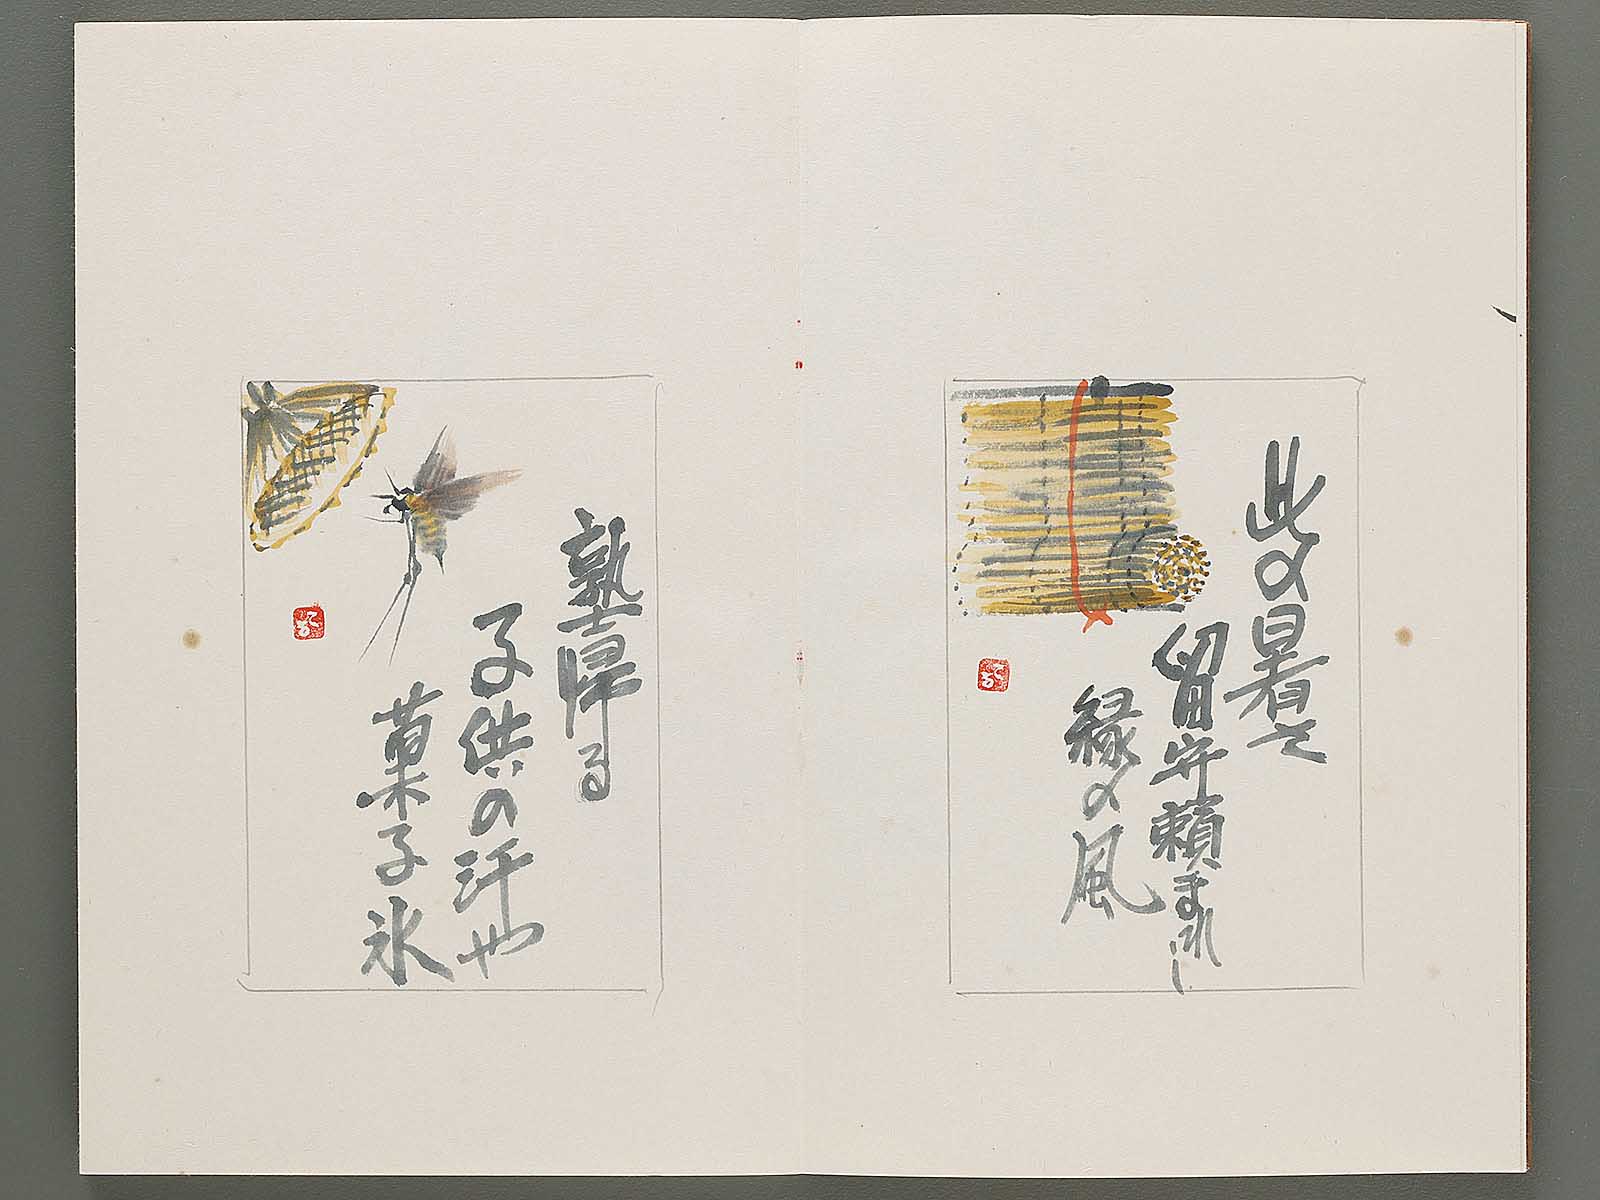 此の暑さ
留守頼まれし
縁の風
塾帰る
子供の汗や
菓子氷